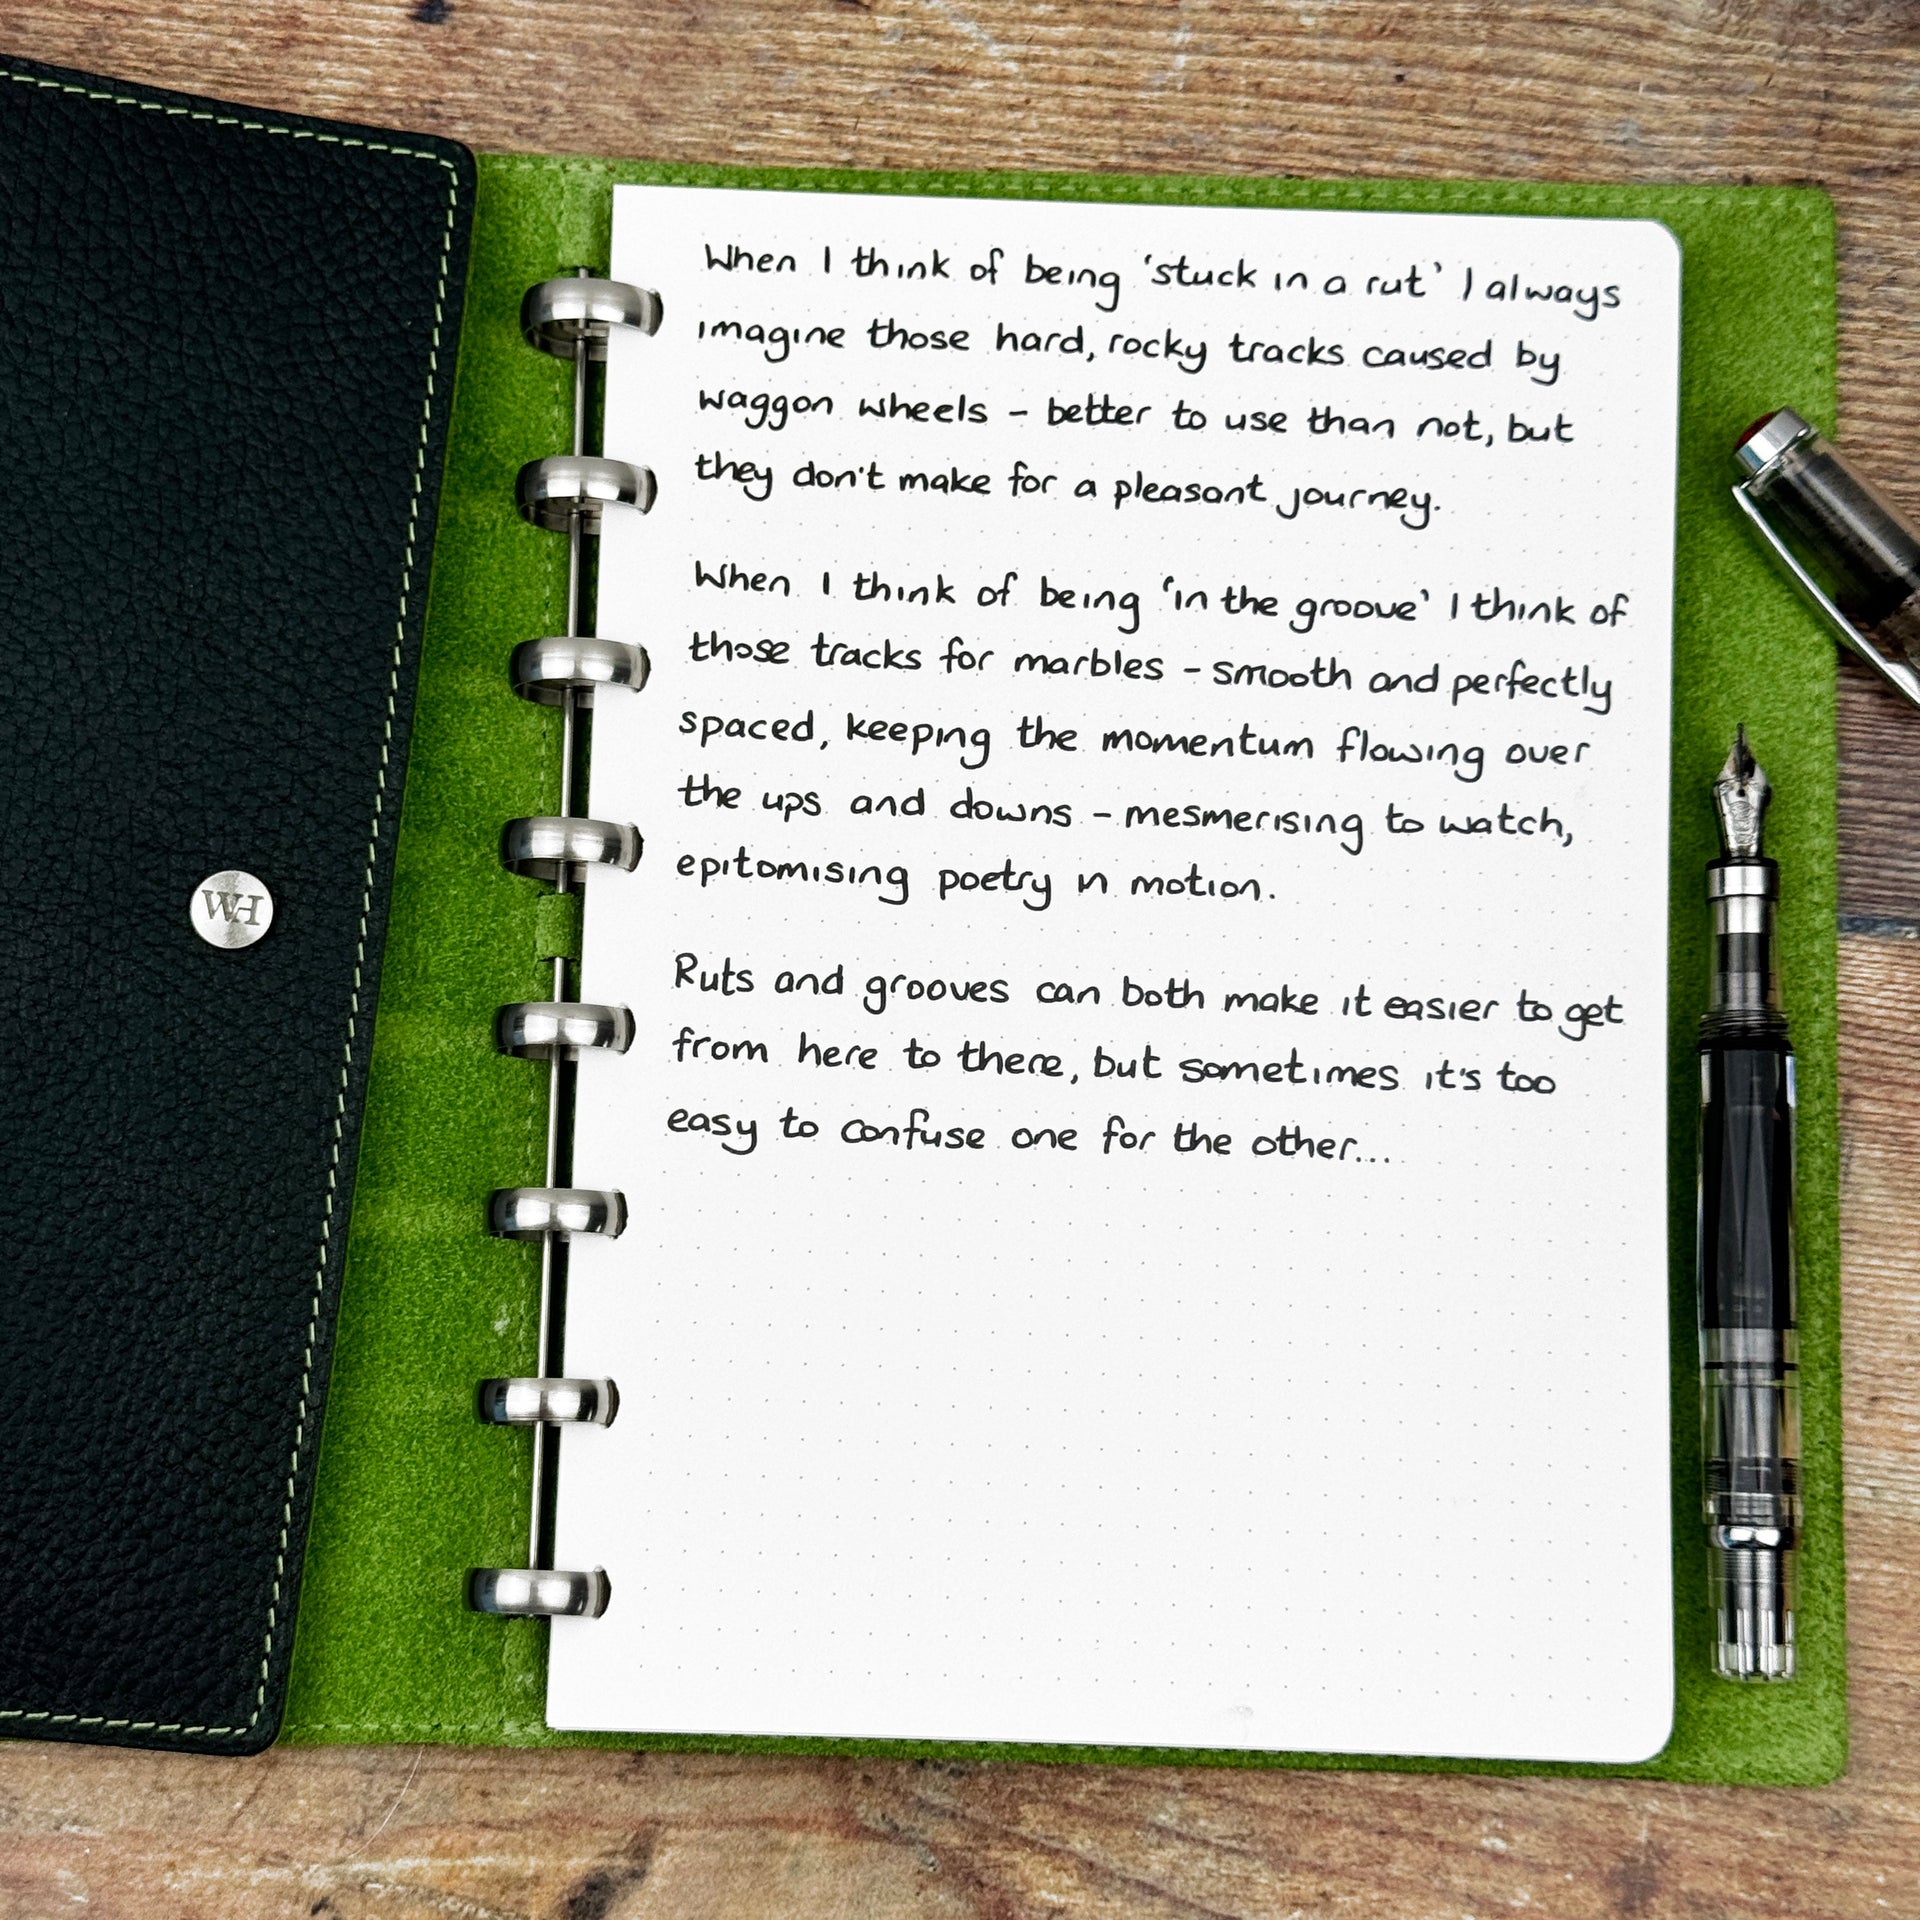 When I think of being 'stuck in a rut' I always
imagine those hard, rocky tracks caused by
waggon wheels - better to use than not, but
they don't make for a pleasant journey.
When I think of being 'in the groove' I think of
those tracks for marbles - smooth and perfectly
spaced, keeping the momentum flowing over
the ups and downs - mesmerising to watch,
epitomising poetry in motion.
Ruts and grooves can both make it easier to get
from here to there, but sometimes it's too
easy to confuse one for the other...
WH